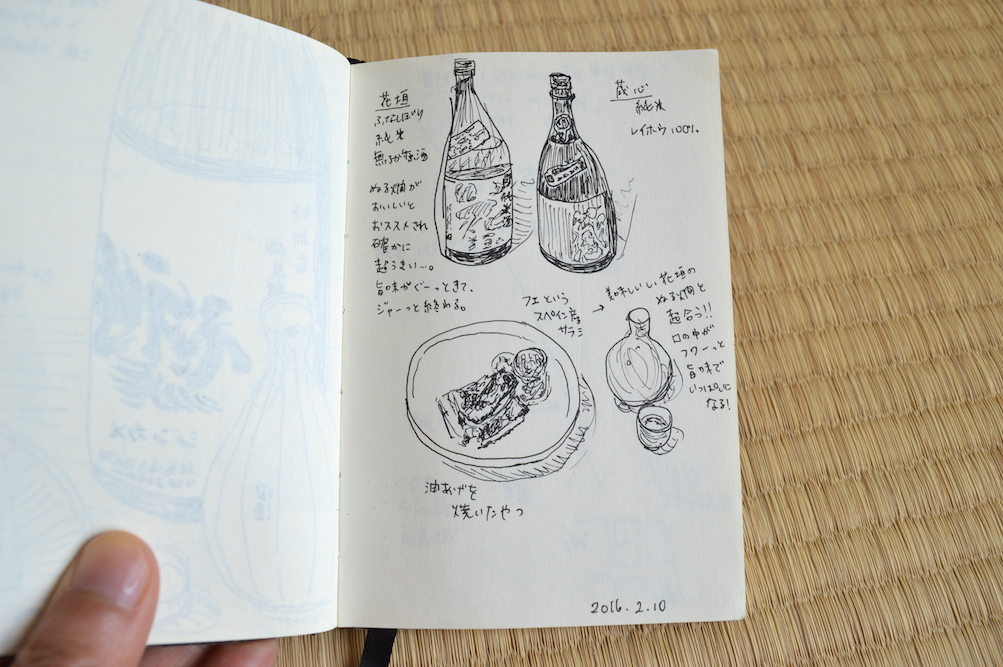 花垣
ふなしぼり
純米
無ろか原酒
ぬる燗が
おいしいと
おススメされ
確かに
超うまい…。
旨味がぐーっときて、
ジャーっと終わる。
蔵心
純米
レイホウ100%
フエという
スペイン産
サラミ
→
美味しいし花垣の
ぬる燗と
超合う!!
口の中が
フワーっと
旨味で
いっぱいに
なる!
油あげを
焼いたやつ
2016.2.10